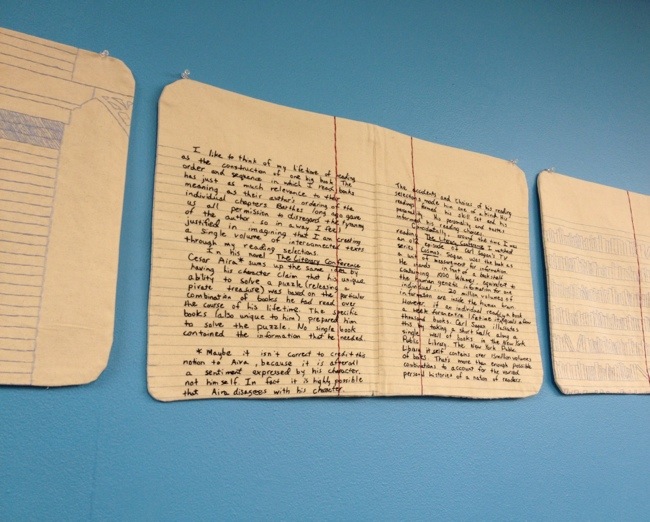 I like to think of my lifetime of reading
as the construction of one big book. The
order and sequence in which I read books
has just as much relevance to their
meaning as their author's ordering of the
individual chapters. Barthes long ago gave
us all permission to disregard the tyranny
of the author, so in a way I feel
justified in imagining that I am creating
a single volume of interconnected texts
through my reading selections.
In his novel The Literary Conference
Cesar Aira* sums up the same idea by
having his character claim that his unique
ability to solve a puzzle (releasing a
private treasure) was based on the particular
combination of books he had read over
the course of his lifetime. The specific
books (also unique to him) prepared him
to solve the puzzle. No single book
contained the information that he needed.
* Maybe it isn't correct to credit this
notion to Aira, because it is afterall
a sentiment expressed by his character,
not himself. In fact it is highly possible
that Aira disagrees with his character.
The accidents and choices of his reading
selections made him one of a kind. His
reading formed his skill set and his
personality. His personality and tastes
informed his reading choices.
Coincidentally, around the time I was
reading The Literary Conference I watched
an old episode of Carl Sagan's TV
Cosmos. Sagan uses the book as
a unit of measurement for information.
He stands in front of a bookshelf
containing 1000 volumes equivalent to
the human genetic information for one
individual. 20 million volumes of
information are inside the human brain.
However if an individual reads a book
a week for an entire lifetime it equals a few
thousand books. Carl Sagan illustrates
this by taking a short walk along a
single wall of books in the New York
Public Library. The New York Public
Library itself contains over 10 million volumes
of books. That's more than enough possible
combinations to account for the varied
personal histories of a nation of readers.